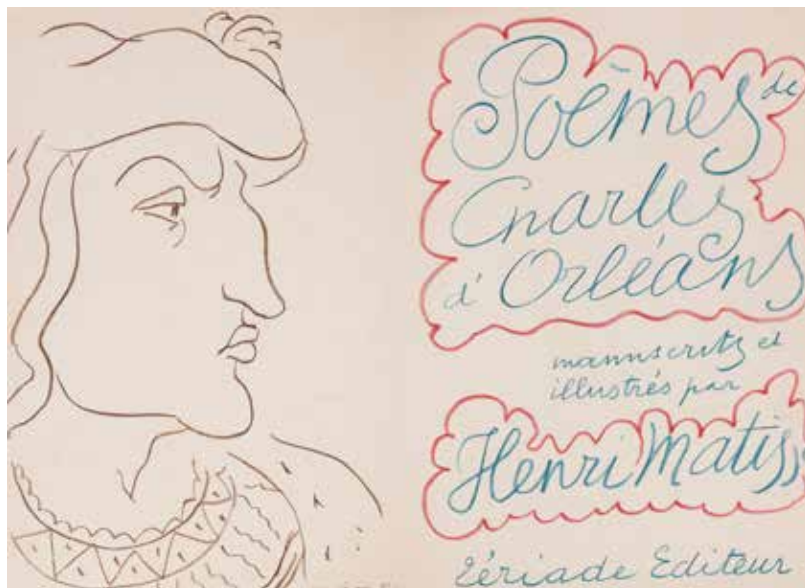 Poèmes de
Charles
d'Orléans
mannscrits et
illustrés par
Henri Matiss
Tériade Editeur